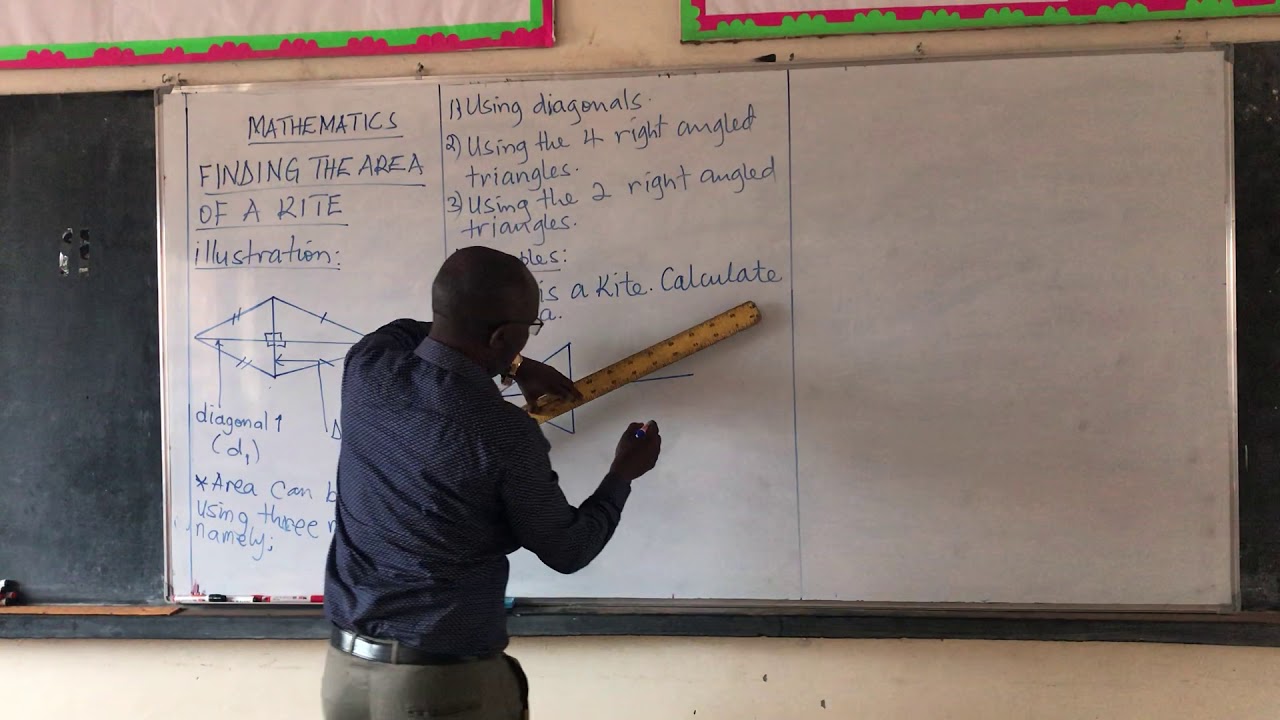 MATHEMATICS
FINDING THE AREA
OF A KITE
illustration:
diagonal 1
(d₁)
*Area can b
using three
namely;
1) Using diagonals.
2) Using the 4 right angled
triangles.
3) Using the 2 right angled
triangles.
ples:
is a kite. Calculate
a.